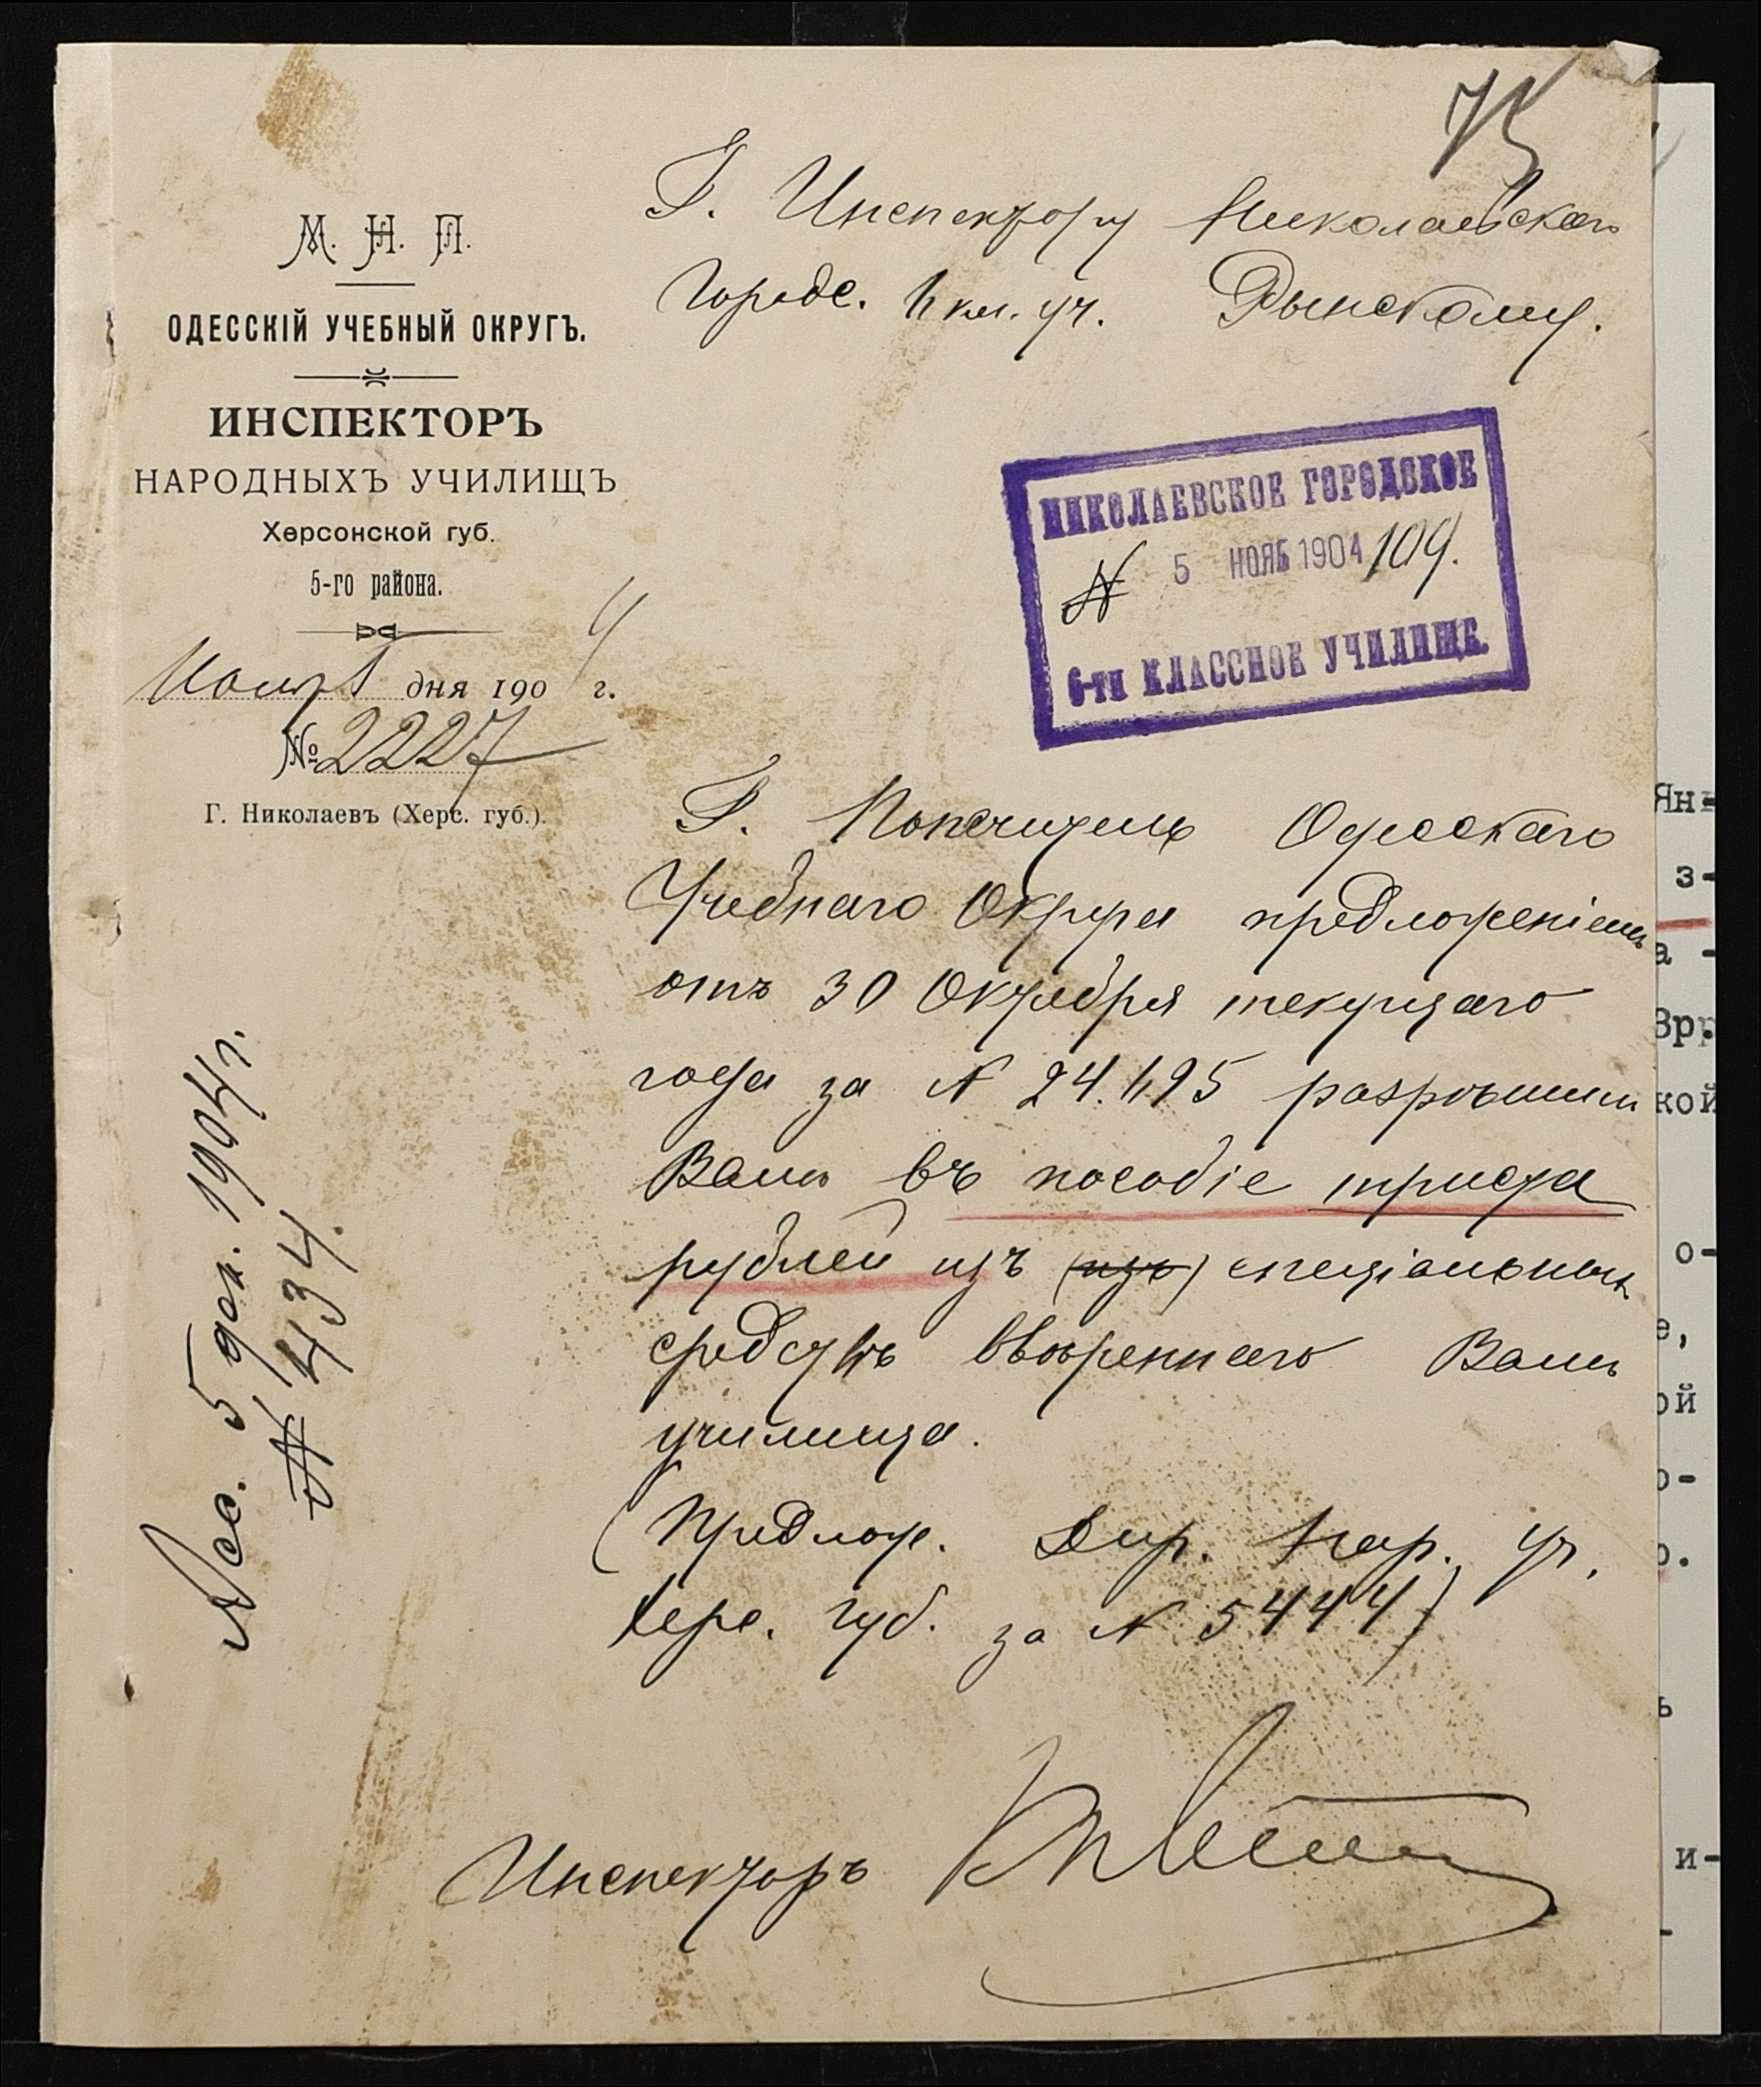 75
М. Н. П.
ОДЕССКІЙ УЧЕБНЫЙ ОКРУГЪ.
ИНСПЕКТОРЪ
НАРОДНЫХЪ УЧИЛИЩЪ
Херсонской губ.
5-го района.
дня 1904 г.
№ 2227
Г. Николаевъ (Херс. губ.).
Г. Инспектору Николаевскаго
Городс. 6 кл. уч. Рынскому.
НИКОЛАЕВСКОЕ ГОРОДСКОЕ
№ 5 НОЯБ 1904 109.
6-ТИ КЛАССНОЕ УЧИЛИЩЕ.
Г. Попечитель Одесскаго
Учебнаго Округа предложеніемъ
отъ 30 Октября текущаго
года за № 24.695 разрѣшилъ
Вамъ въ пособіе триста
рублей изъ (изъ) спеціальныхъ
средствъ ввѣреннаго Вамъ
училища.
(Предлож. Дир. Нар. Уч.
Херс. губ. за № 5444)
Инспекторъ
Асс. 5 дек. 1904 г.
№ 434.
Ян-
з-
а -
Зр.
кой
о-
е,
ой
о-
р.
ъ
и-
-